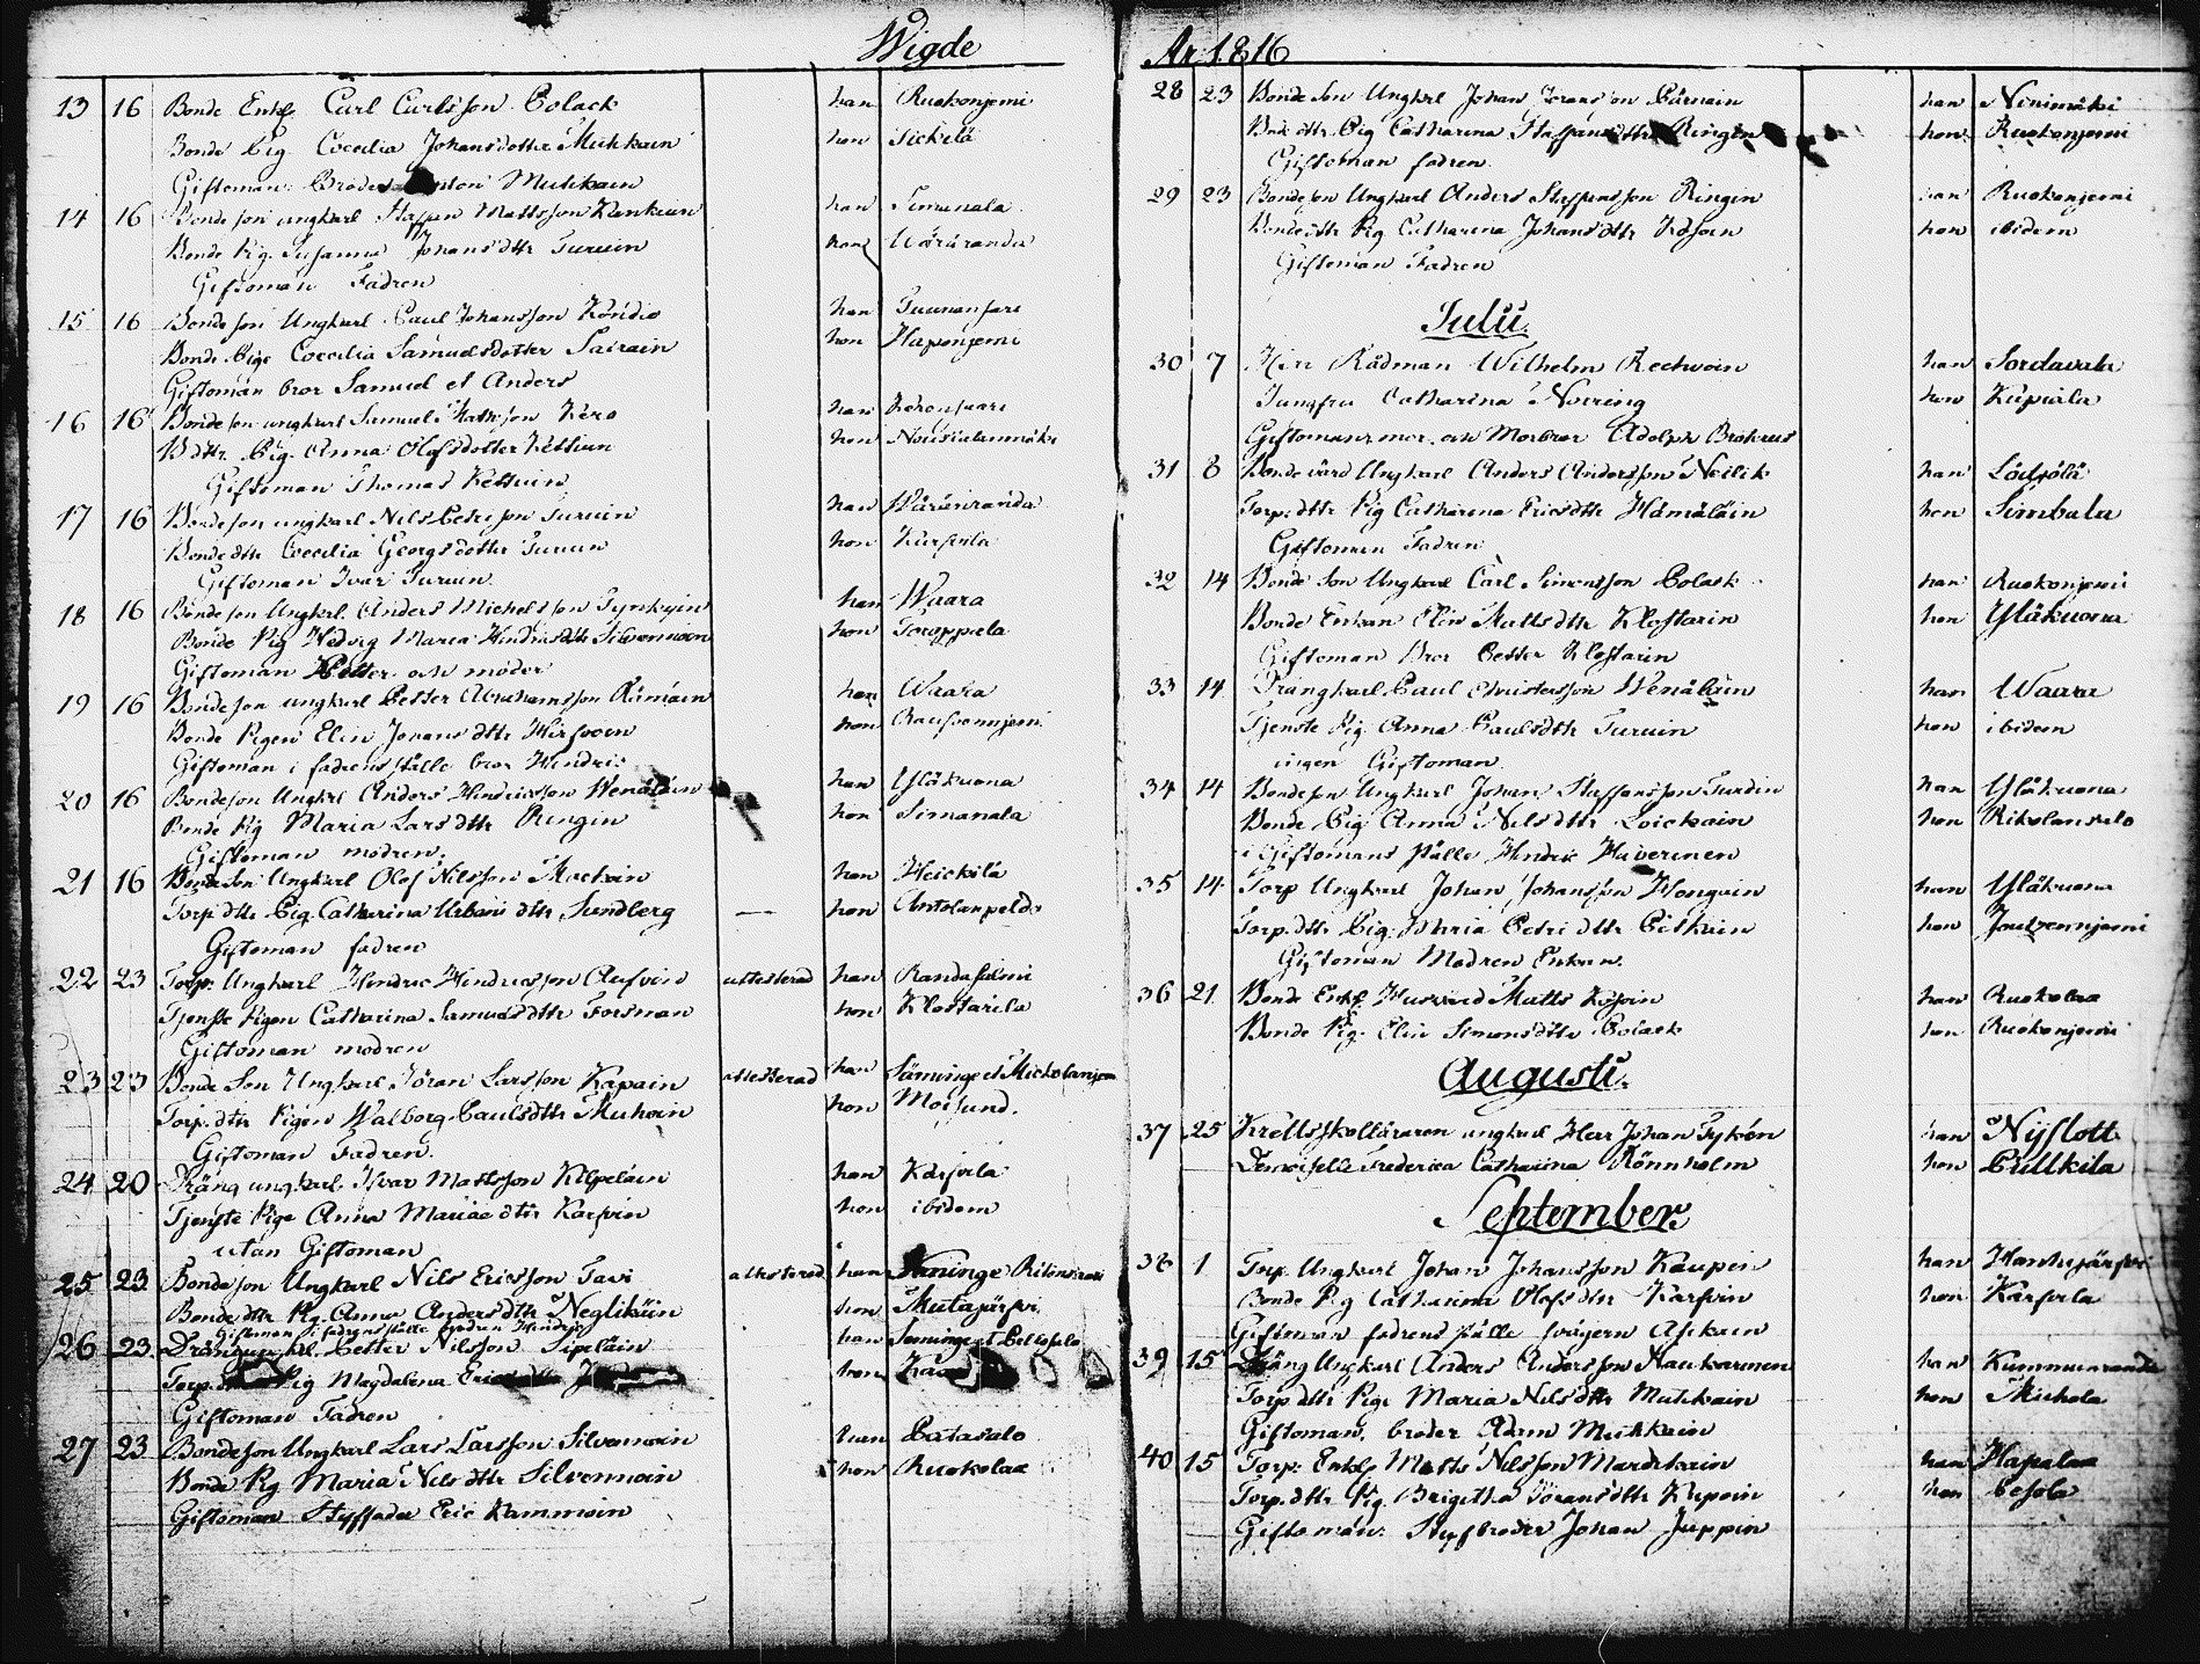 Wigde
13 16 Bonde Enkl. Carl Carlsson Polack han Ruokonjemi
Bonde Pig Coecilia Johansdotter Muhkain hon Sickilä
Giftoman: Broder Muhkain
14 16 Bonde son ungkarl Staffan Mattsson Kankain han Simunala
Bonde Pig. Susanna Johans dttr Turuin hon Wäräranda
Giftoman Fadren
15 16 Bonde son Ungkarl Paul Johansson Köndiö han Tuunansari
Bonde Pige Coecilia Samuelsdotter Sairain hon Hapanjemi
Giftoman bror Samuel et Anders
16 16 Bonde son ungkarl Samuel Mattsson Kero han Keronsaari
B dttr. Pig. Anna Olofsdotter Kettuin hon
Giftoman Thomas Kettuin
17 16 Bonde son ungkarl Nils Petri son Turuin han Wäränranda
Bonde dttr Coecilia Georgsdotter Turuin hon Karsila
Giftoman Ivar Turuin
18 16 Bonde son Ungkrl. Anders Michelsson Tynkyin han Waara
Bonde Pig Hedvig Maria Hindrics dttr Silvennoin hon Toroppila
Giftoman Petter och moder
19 16 Bonde son ungkarl Petter Abrahamsson Rämäin han Waara
Bonde Pigen Elin Johans dttr Hirsvoin hon Rauvanniemi
Giftoman i fadrens ställe bror Hindric
20 16 Bondeson Ungkrl Anders Hindricsson Wenäläin han Yläkuona
Bonde Pig Maria Lars dttr Ringin hon Simanala
Giftoman modren.
21 16 Bonde Son Ungkarl Olof Nilsson Muckain han Heickilä
Torp dttr Pig. Catharina Urbani dttr Sundberg — hon Antolanpeldo
Giftoman fadren
22 23 Torp: Ungkarl Hindric Hindricsson Aufvin attesterad han Randasalmi
Tjenste Pigen Catharina Samuels dttr Forsman hon Klostarila
Giftoman modren
23 23 Bonde Son Ungkarl Jöran Larsson Kapain attesterad han Säminge et Mickolanjem
Torp. dttr Pigen Walborg Pauls dttr Muhoin hon Moisund.
Giftoman Fadren.
24 20 Dräng ungkarl Ifvar Mattsson Kilpeläin han Karsila
Tjenste Pige Anna Mariae dttr Karfvin hon ibidem
utan Giftoman
25 23 Bonde son Ungkarl Nils Ericsson Tavi attesterad han Säminge
Bonde dttr Pig. Anna Anders dttr Negliküin hon Mutajärfvi
Giftoman i fadrens ställe Hindric
26 23 Dräng ungkrl. Petter Nilsson Sipeläin han Säminge et Pellosalo
Torp. Pig Magdalena hon
Giftoman Fadren
27 23 Bondeson Ungkarl Lars Larsson Silvennoin han Patasalo
Bonde Pig Maria Nils dttr Silvennoin hon Ruokolax
Giftoman Styffader Eric Kammoin
Ar. 1816
28 23 Bonde Son Ungkrl Johan Jöransson Pärnäin han Niinimäki
Bnde dttr. Pig Catharina Staffans dttr Ringin hon Ruokonjemi
Giftoman fadren.
29 23 Bonde son Ungkarl Anders Staffansson Ringin han Ruokonjemi
Bonde dttr Pig Catharina Johans dttr Kosoin hon ibidem
Giftoman Fadren
Julii.
30 7 Herr Rådman Wilhelm Rechvain han Sordavala
Jungfru Catharina Noiring hon Kupiala
Giftomans mor. och Morbror Adolph Broheus
31 8 Bonde värd Ungkarl Anders Andersson Neilik han
Torp. dttr Pig Catharina Erics dttr Hämäläin hon Simbala
Giftoman Fadren
32 14 Bonde Son Ungkarl Carl Simonsson Polack han Ruokonjemi
Bonde Enkan Elin Matts dttr Klostarin hon Yläkuona
Giftoman Bror Petter Klostarin
33 14 Drängkarl Paul Christersson Wenäläin han Waara
Tjenste Pig. Anna Pauls dttr Turuin hon ibidem
ingen Giftoman.
34 14 Bonde son Ungkarl Johan Staffansson Turdin han Yläkuona
Bonde Pig Anna Nils dttr Loickain hon Rikolansalo
i Giftomans ställe Hindric Haverinen
35 14 Torp Ungkarl Johan Johansson Hongain han Yläkuona
Torp. dttr Pig. Maria Petri dttr Pitkain hon Joutzennjemi
Giftoman Modren Enkan.
36 21 Bonde Enkl Matts Kosoin han Ruokolax
Bonde Pig. Elin Simons dttr Polack hon Ruokonjemi
Augusti.
37 25 Kretts skolläraren ungkarl Herr Johan Tykén han Nyslott
Demoiselle Frederica Catharina Rönnholm hon Pullkila
September.
38 1 Torp Ungkarl Johan Johansson Kaupin han Hanhijärfvi
Bonde Pig Catharina Olofs dttr Karfvin hon Karsila
Giftoman fadrens ställe svågern Asikain
39 15 Dräng Ungkarl Anders Andersson Haukarinen han Kummunranda
Torp dttr Pige Maria Nils dttr Muhkain hon Michola
Giftoman. broder Adam Muhkain
40 15 Torp: Enkl Matts Nilsson Mardikain han Hapalax
Torp. dttr Pig. Brigitha Jörans dttr Kupoin hon Pesola
Giftoman: Styfbroder Johan Juppin